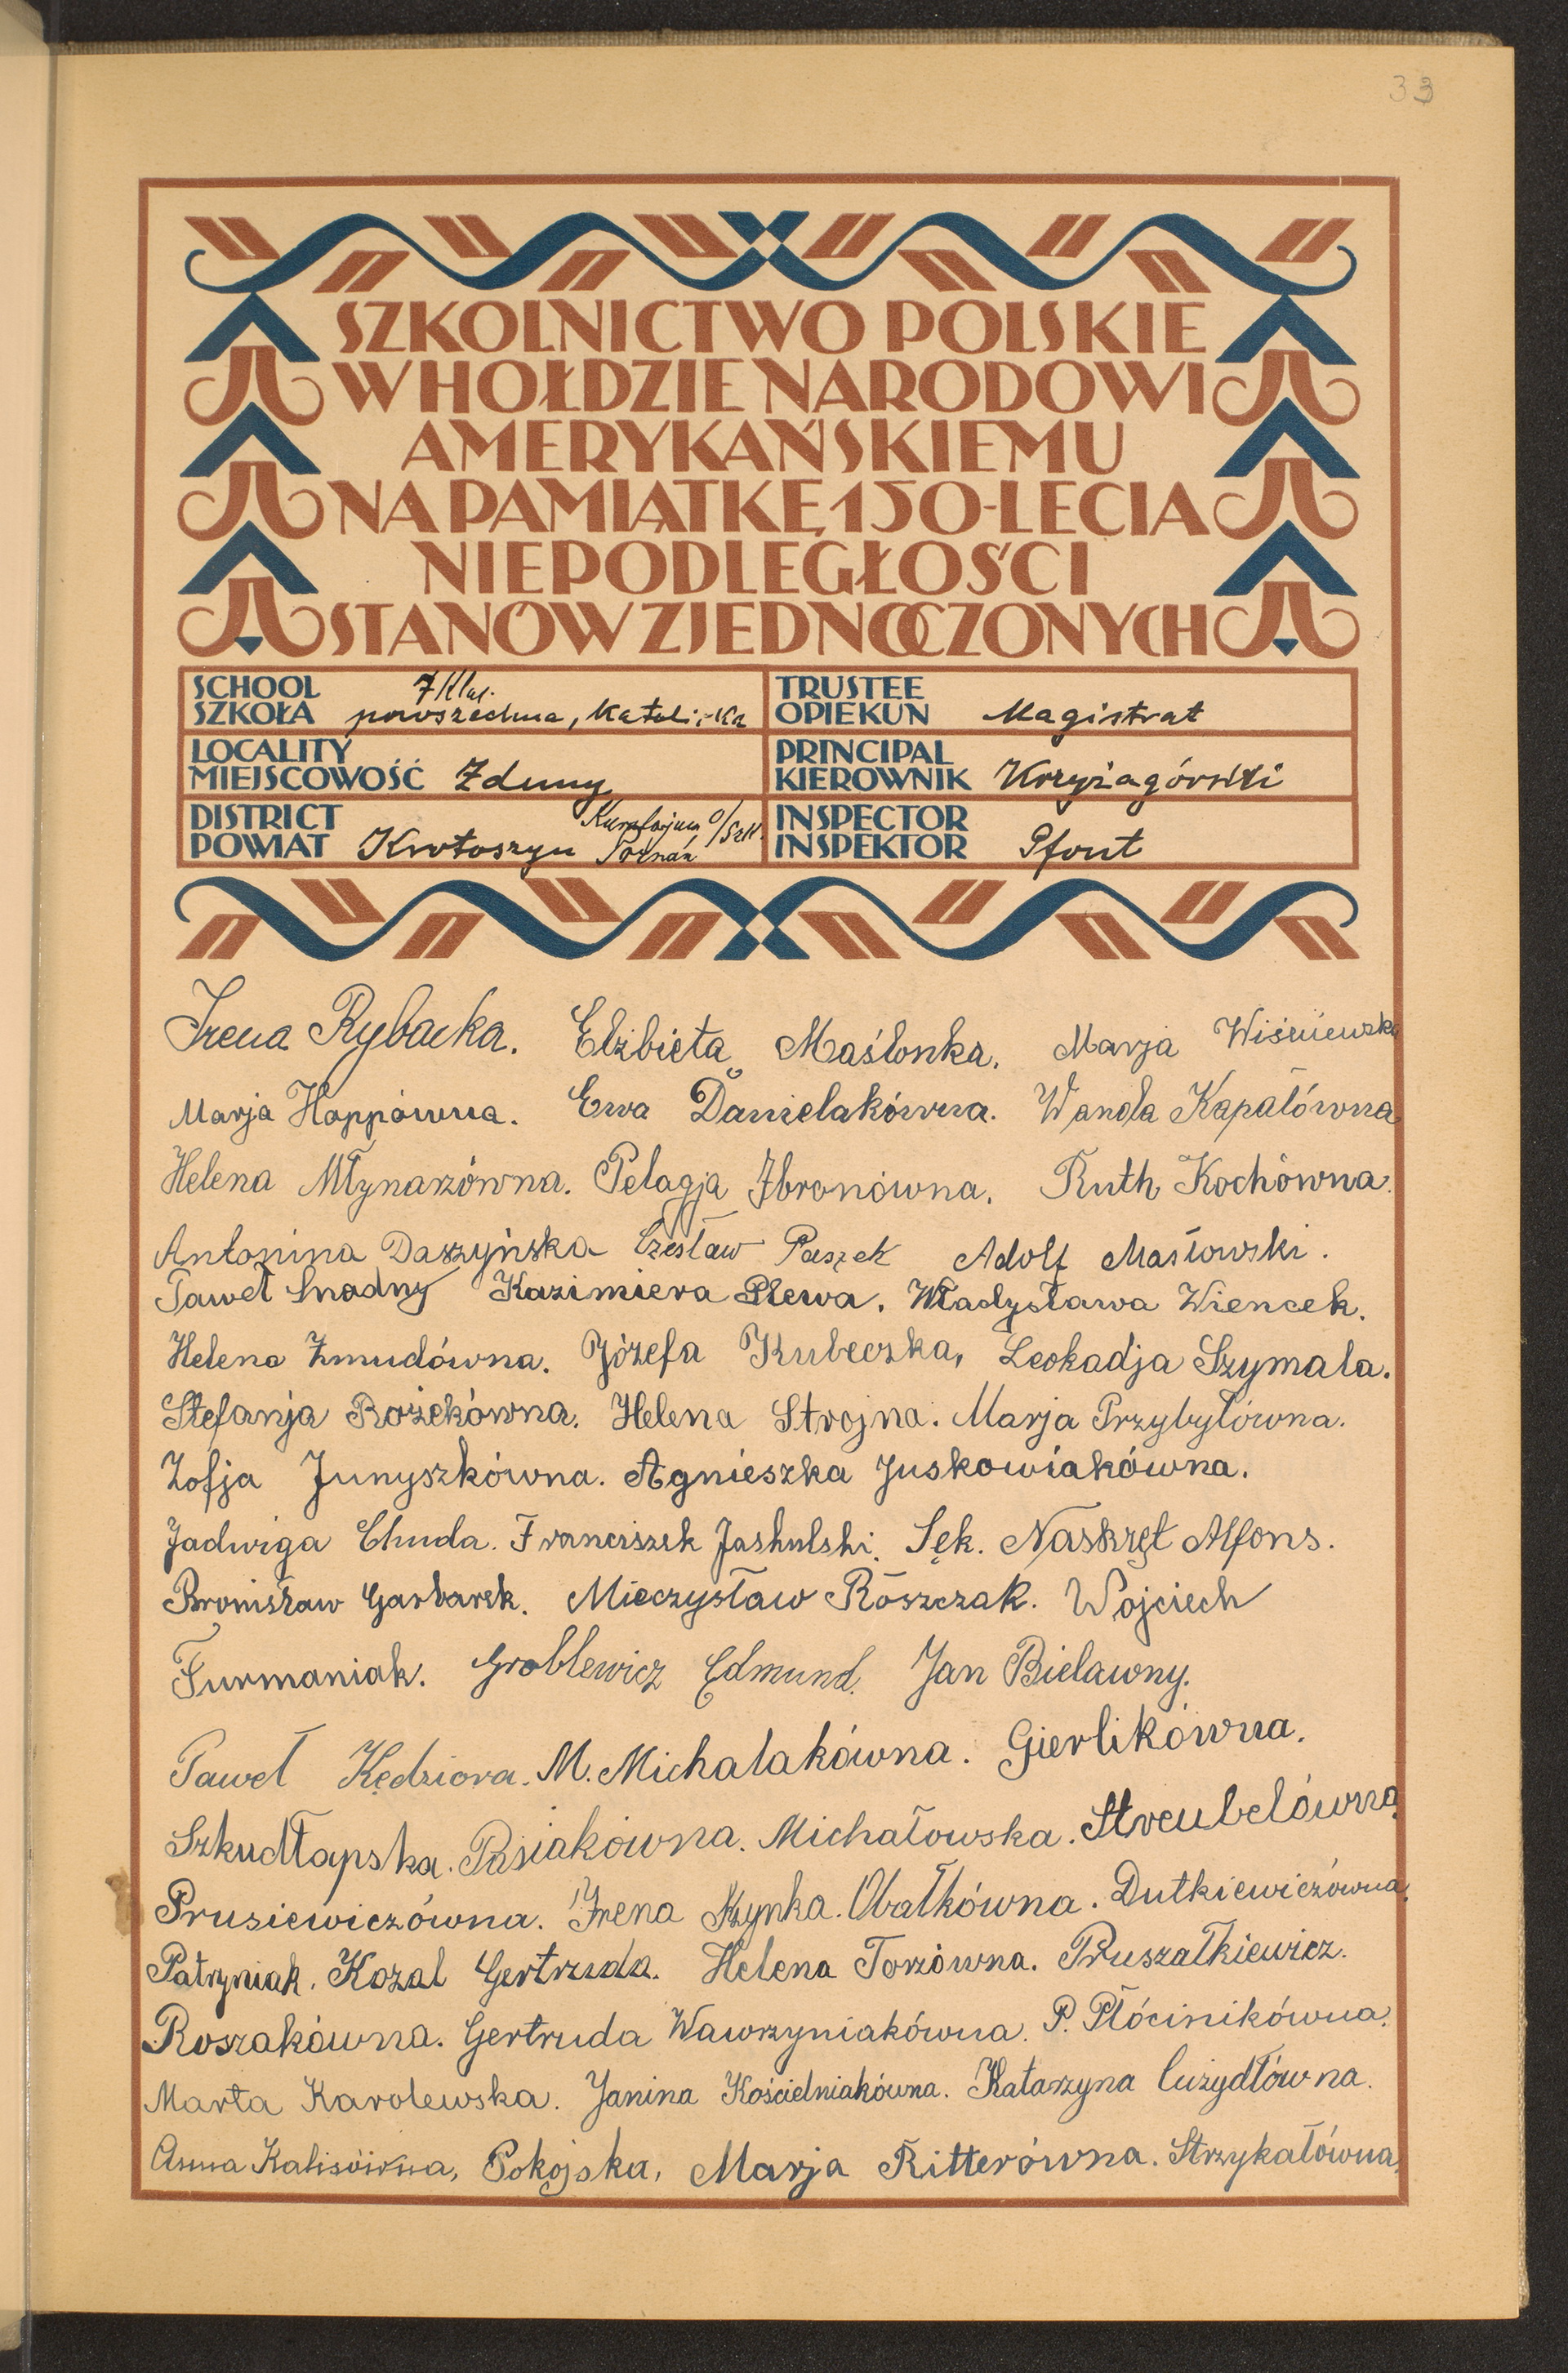 33
SZKOLNICTWO POLSKIE
W HOŁDZIE NARODOWI
AMERYKAŃSKIEMU
NA PAMIĄTKĘ 150-LECIA
NIEPODLEGŁOŚCI
STANÓW ZJEDNOCZONYCH
SCHOOL SZKOŁA 7 Klas. powszechna, Katolicka
TRUSTEE OPIEKUN Magistrat
LOCALITY MIEJSCOWOŚĆ Zduny
PRINCIPAL KIEROWNIK Krzyżagórski
DISTRICT POWIAT Krotoszyn Kuratorjum O/Szk. Poznań
INSPECTOR INSPEKTOR Pfont
Irena Rybacka. Elżbieta Maślonka. Marja Wiśniewska
Marja Hoppówna. Ewa Danielakówna. Wanda Kapałówna
Helena Młynarzówna. Pelagja Zbronówna. Ruth Kochówna.
Antonina Daszyńska Czesław Paszek Adolf Masłowski.
Paweł Snadny Kazimiera Plewa. Władysława Wiencek.
Helena Żmudówna. Józefa Kubeczka, Leokadja Szymala.
Stefanja Rożekówna. Helena Strojna. Marja Przybyłówna.
Zofja Junyszkówna. Agnieszka Juskowiakówna.
Jadwiga Chuda. Franciszek Jaskulski. Sęk. Naskręt Alfons.
Bronisław Garbarek. Mieczysław Roszczak. Wojciech
Furmaniak. Groblewicz Edmund. Jan Bielawny.
Paweł Kędziora. M. Michalakówna. Gierlikówna.
Szkudłapska. Pasiakówna. Michałowska. Streubelówna.
Prusiewiczówna. Irena Obałkówna. Dutkiewiczówna.
Patryniak. Kozal Gertruda. Helena Torzówna. Pruszałkiewicz.
Roszakówna. Gertruda Wawrzyniakówna. P. Płócinikówna.
Marta Karolewska. Janina Kościelniakówna. Katarzyna Cużydłówna.
Anna Kalisówna, Pokojska, Marja Ritterówna. Strzykałówna.